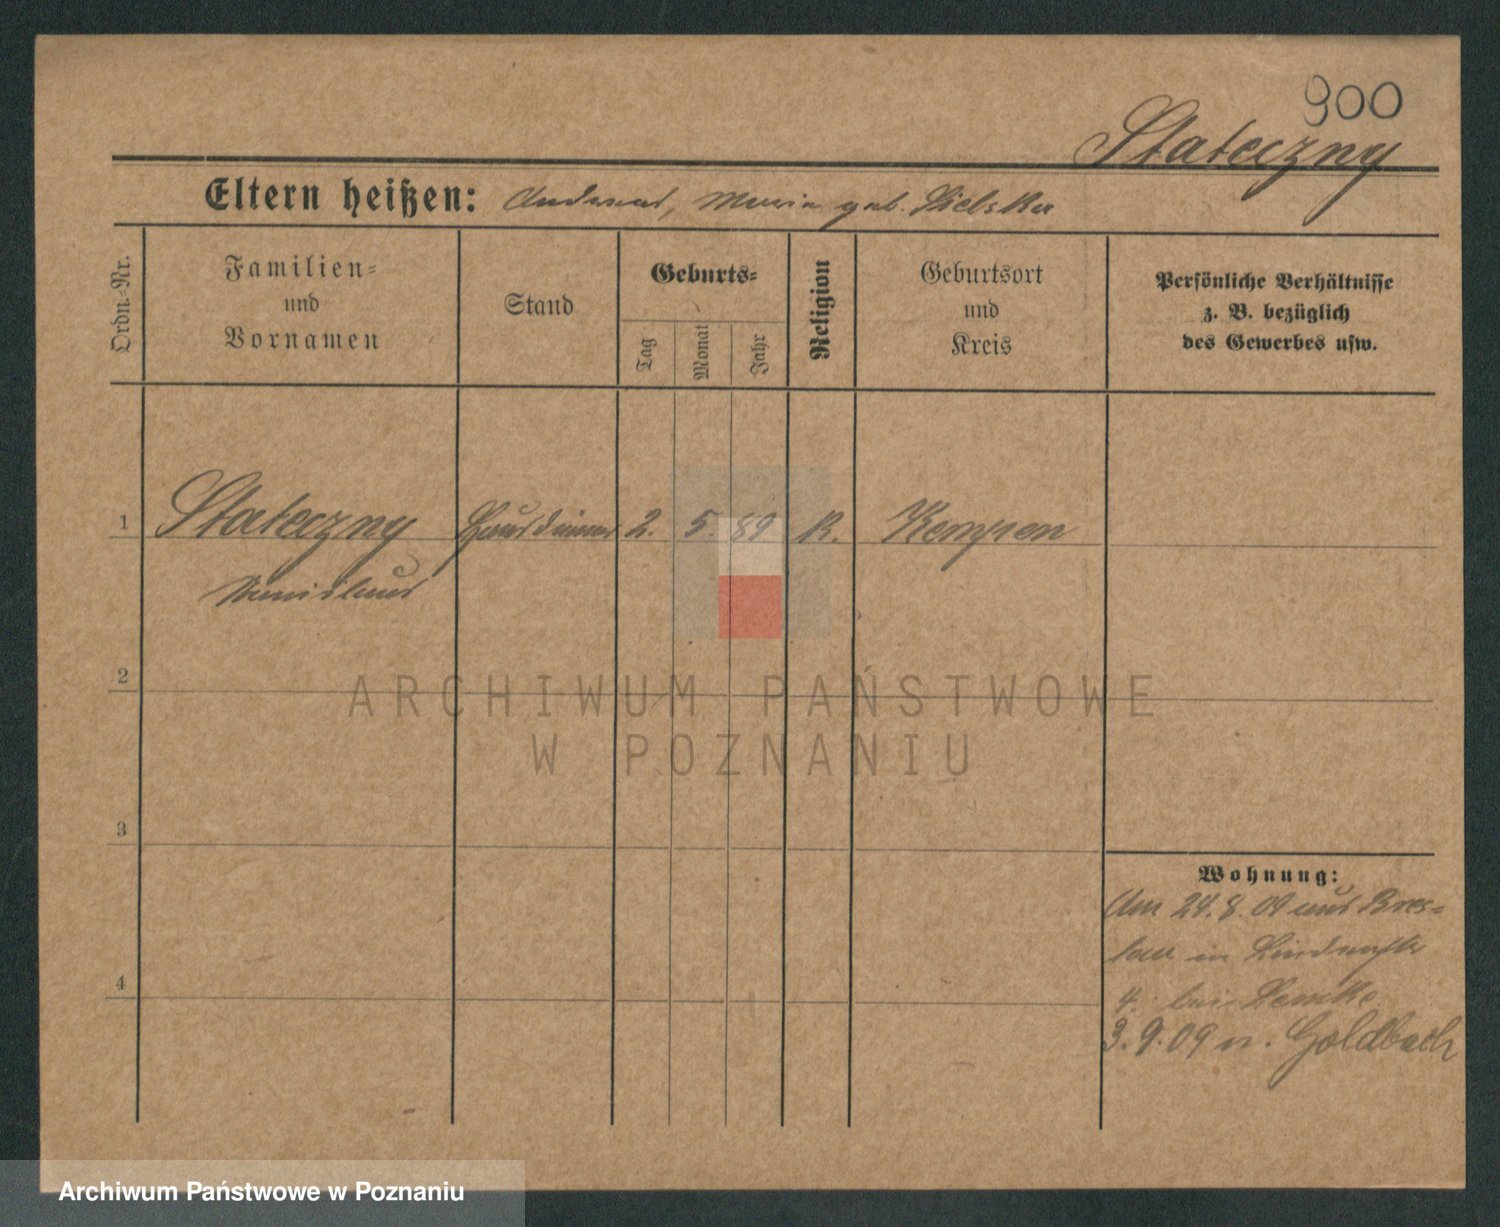 900
Stateczny
Eltern heißen: Andreas, Maria geb. Sielska
Ordn.-Nr.
Familien-
und
Vornamen
Stand
Geburts-
Tag
Monat
Jahr
Religion
Geburtsort
und
Kreis
Persönliche Verhältnisse
z. B. bezüglich
des Gewerbes usw.
1 Stateczny Hausdiener 2. 5. 89 R. Kempen
Stanislaus
2
ARCHIWUM PAŃSTWOWE
W POZNANIU
3
Wohnung:
Am 24. 8. 09 aus Bres-
lau in Lindenstr
4. bei Lemke
4
3. 9. 09 n. Goldbach
Archiwum Państwowe w Poznaniu